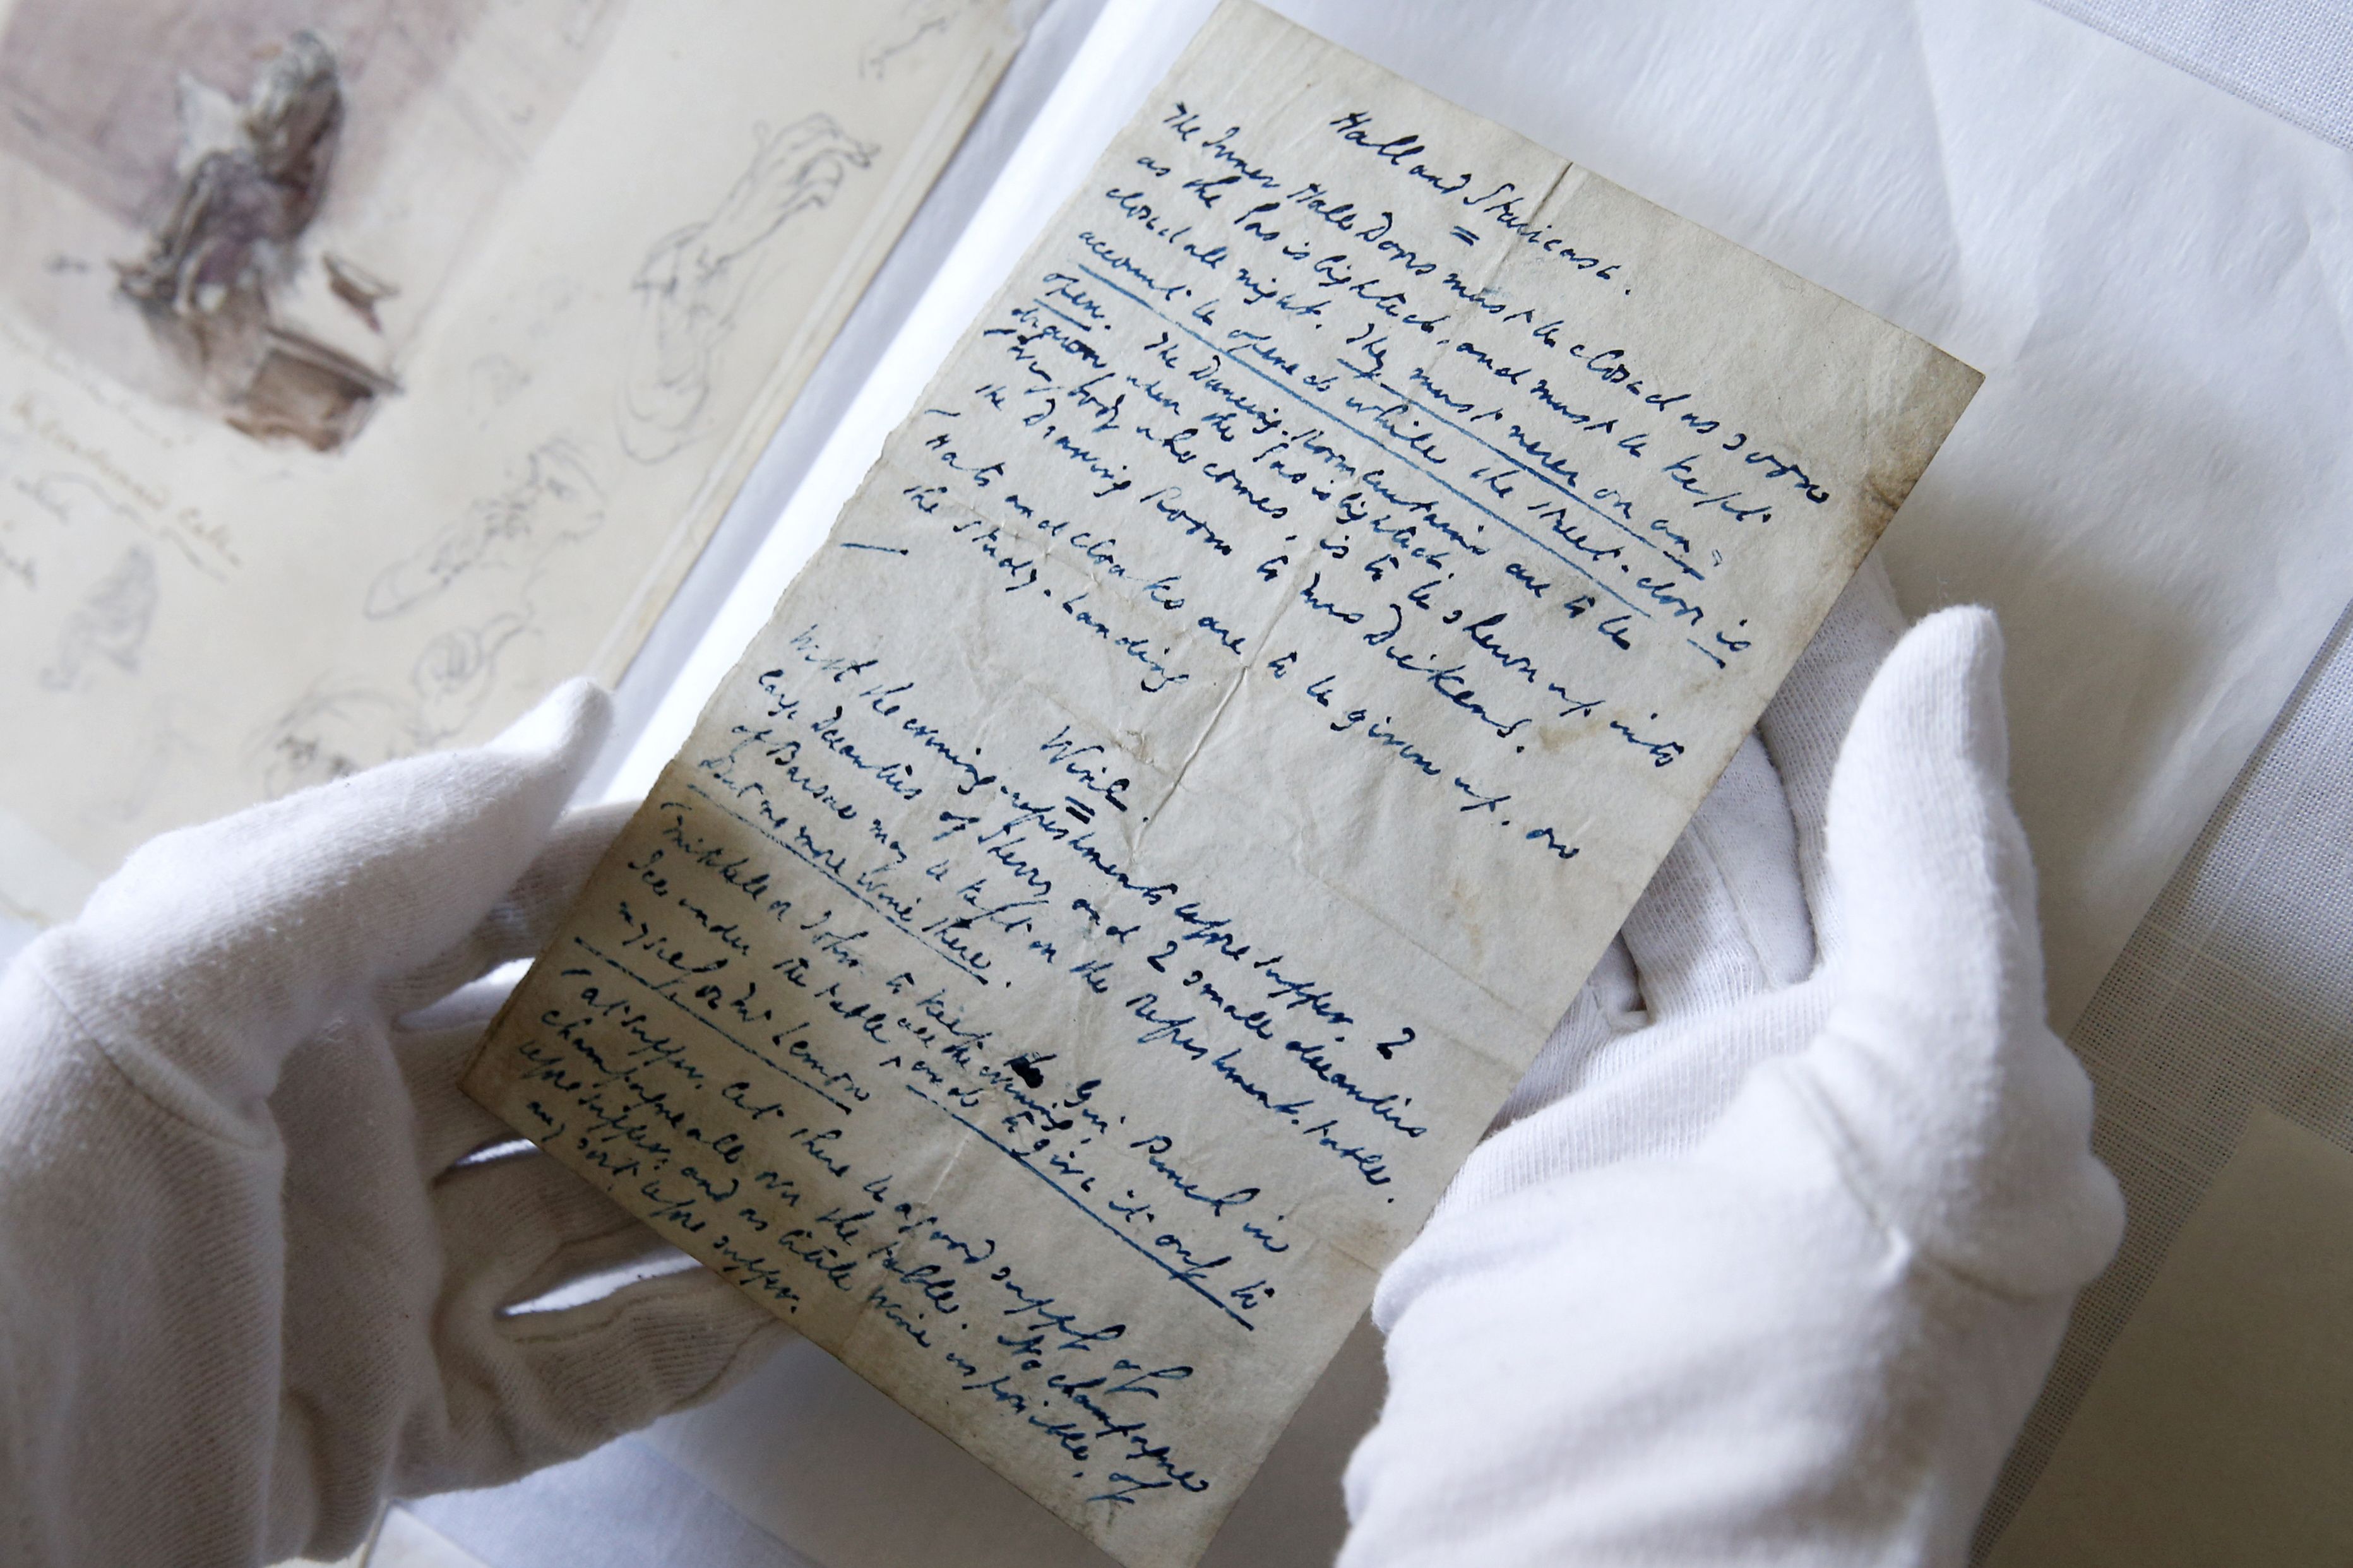 Hall and Staircase.
The Inner Hall Doors must be closed as soon
as the Gas is lighted, and must be kept
closed all night. They must never on any
account be opened while the street-door is
open. The Dancing-Room curtains are to be
drawn when the Gas is lighted.
Every body who comes, is to be shewn up into
the Drawing Room to Mrs Dickens.
Hats and cloaks are to be given up, on
the Study-Landing
Wine.
With the evening refreshments before supper, 2
large Decanters of Sherry and 2 small decanters
of Barsac may be kept on the Refreshment-table.
But no more Wine there.
Mitchell or John to keep the Gin Punch in
Ice under the table, all the evening, and to give it only to
myself or Mr Lemon
At supper, let there be a good supply of
champagne all over the table. No champagne
before supper, and as little wine as possible, of
any sort, before supper.